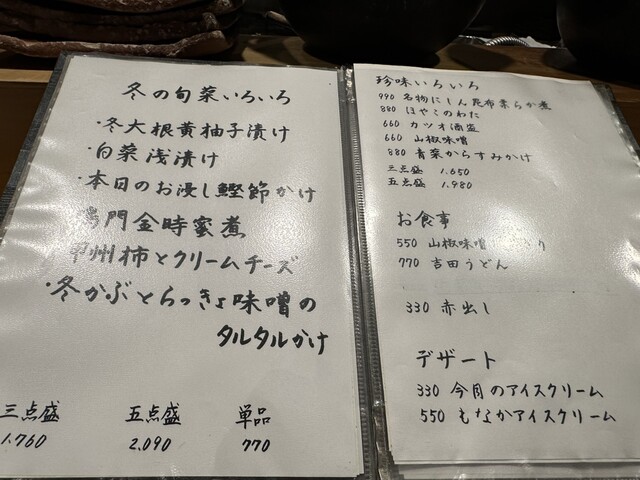 冬の旬菜いろいろ
・冬大根黄柚子漬け
・白菜浅漬け
・本日のお浸し鰹節かけ
門金時蜜煮
州柿とクリームチーズ
・冬かぶとらっきょ味噌の
タルタルかけ
三点盛 五点盛 単品
1.760 2.090 770
珍味いろいろ
990 名物にしん昆布柔らか煮
880 ほやこのわた
660 カツオ酒盗
660 山椒味噌
880 青菜からすみかけ
三点盛 1.650
五点盛 1.980
お食事
550 山椒味噌 り
770 吉田うどん
330 赤出し
デザート
330 今月のアイスクリーム
550 もなかアイスクリーム